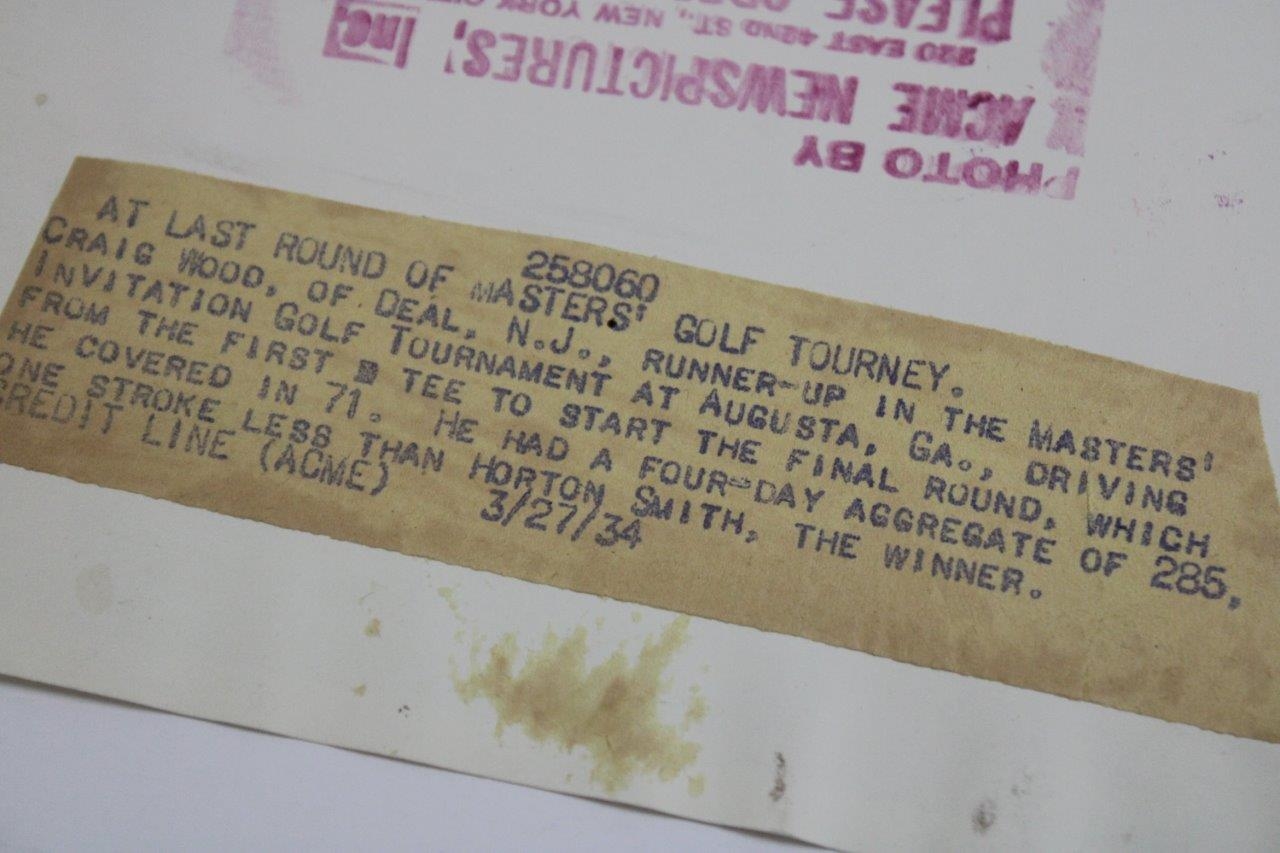 PHOTO BY
ACME NEWSPICTURES, Inc.
220 EAST 42ND ST., NEW YORK
PLEASE
258060
AT LAST ROUND OF MASTERS' GOLF TOURNEY.
CRAIG WOOD, OF DEAL, N.J., RUNNER-UP IN THE MASTERS'
INVITATION GOLF TOURNAMENT AT AUGUSTA, GA., DRIVING
FROM THE FIRST TEE TO START THE FINAL ROUND, WHICH
HE COVERED IN 71. HE HAD A FOUR-DAY AGGREGATE OF 285,
ONE STROKE LESS THAN HORTON SMITH, THE WINNER.
CREDIT LINE (ACME) 3/27/34